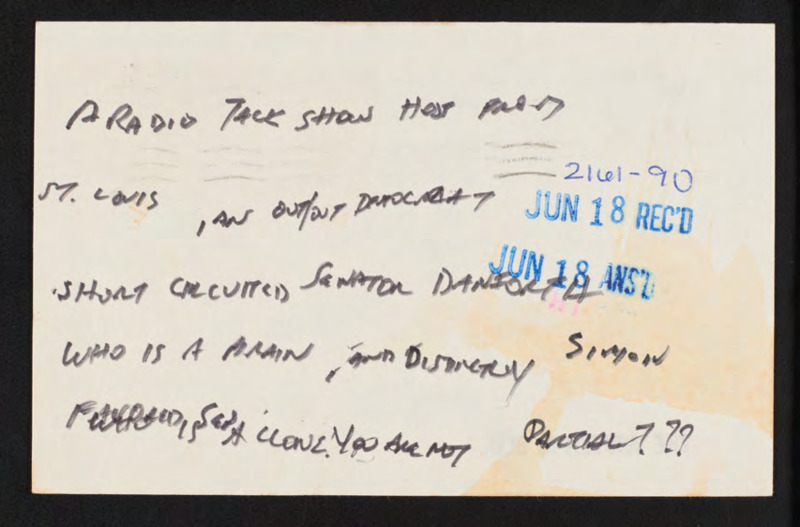 A RADIO TALK SHOW HOST FROM
2161-90
ST. LOUIS, AN OUT/OUT DEMOCRAT
JUN 18 REC'D
JUN 18 ANS'D
SHORT CIRCUITED SENATOR DANFORTH
WHO IS A BRAIN, AND DISTINCTLY SIMON
IS A CLONE. YOU ARE NOT PARTIAL???